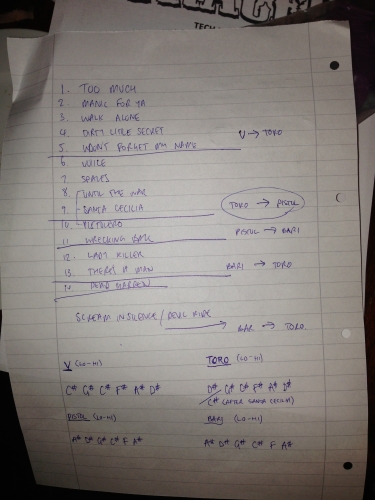 TECH
1. TOO MUCH
2 MANIC FOR YA
3. WALK ALONE
4. DIRTY LITTLE SECRET
V → TORO
5. WON'T FORGET NAME
6. VOICE
7.
8. UNTIL THE WAR
9. SANTA CECILIA
TORO → PISTOL
10. PISTOLERO
PISTOL → BARI
11. WRECKING BALL
12. LADY KILLER
BARI → TORO
13. THERE'S A MAN
14. DEAD
SCREAM IN SILENCE / DEVIL RIDE
→ BAR → TORO.
V (LO-HI)
C# G# C# F# A# D#
TORO (LO-HI)
D# G# D# F# A# D#
C# (AFTER SANTA CECILIA)
PISTOL (LO-HI)
A# D# G# C# F A#
BARI (LO-HI)
A# D# G# C# F A#